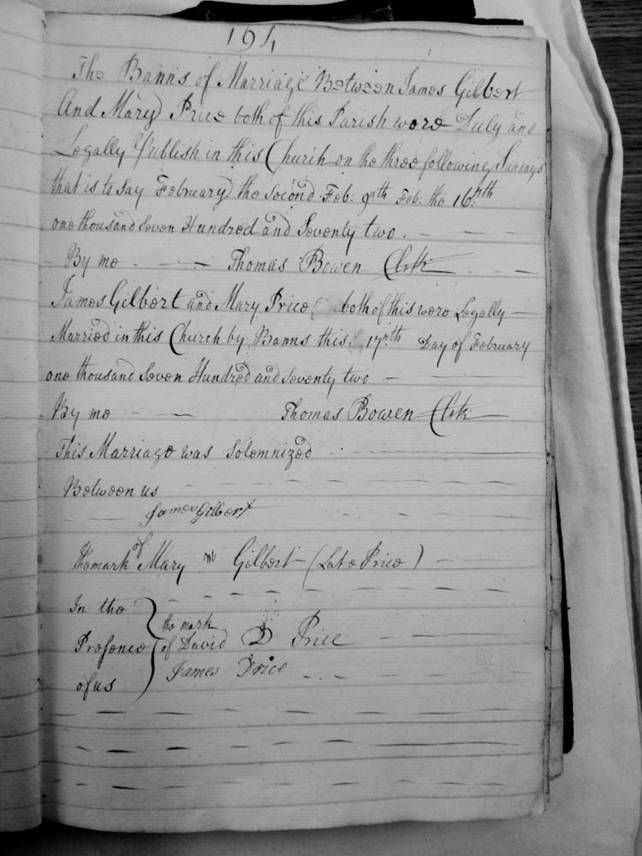 194
The Banns of Marriage Between James Gilbert
And Mary Price both of this Parish were Duly and
Legally Publish in this Church on the three following Sundays
that is to say February the Second Feb: 9th Feb. the 16nth
one thousand Seven Hundred and Seventy two.
By me Thomas Bowen Clrk
James Gilbert and Mary Price both of this were Legally
Married in this Church by Banns this 17nth Day of February
one thousand Seven Hundred and Seventy two
By me Thomas Bowen Clrk
This Marriage was Solemnized
Between us
James Gilbert
The mark of Mary m Gilbert (Late Price)
In the
Presence
of us
the mark
of David D Price
James Price